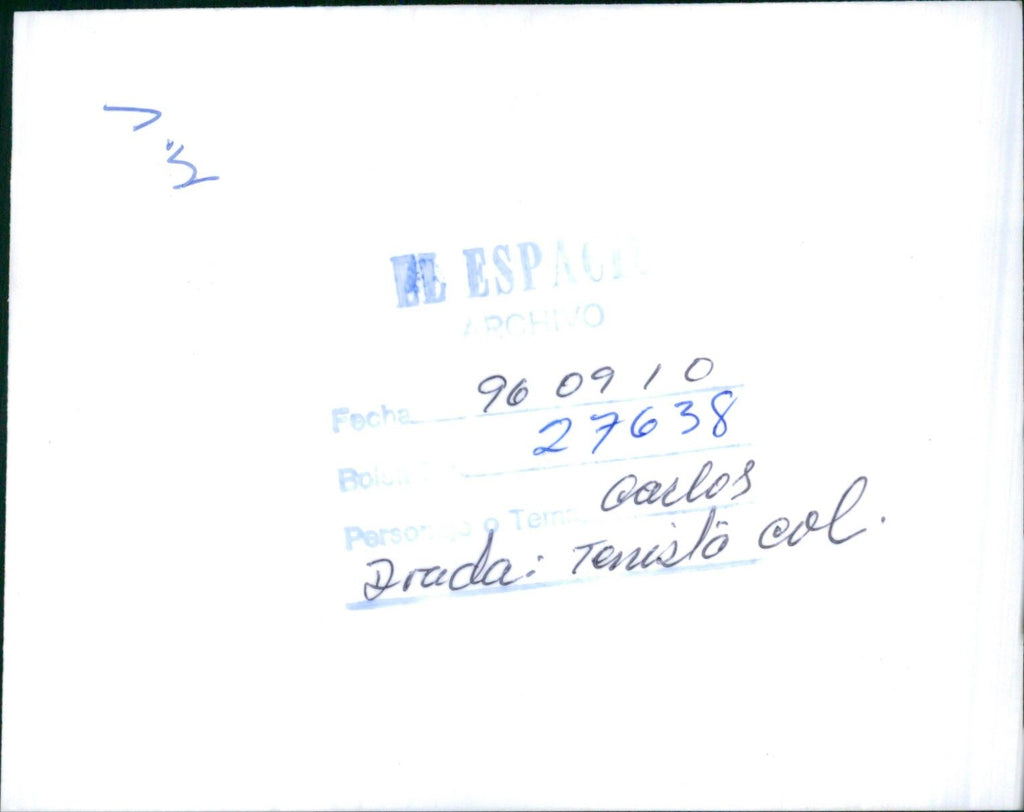 EL ESPACIO
ARCHIVO
Fecha 96 09 10
27638
Personaje o Tema Carlos
Drada: Tenista col.